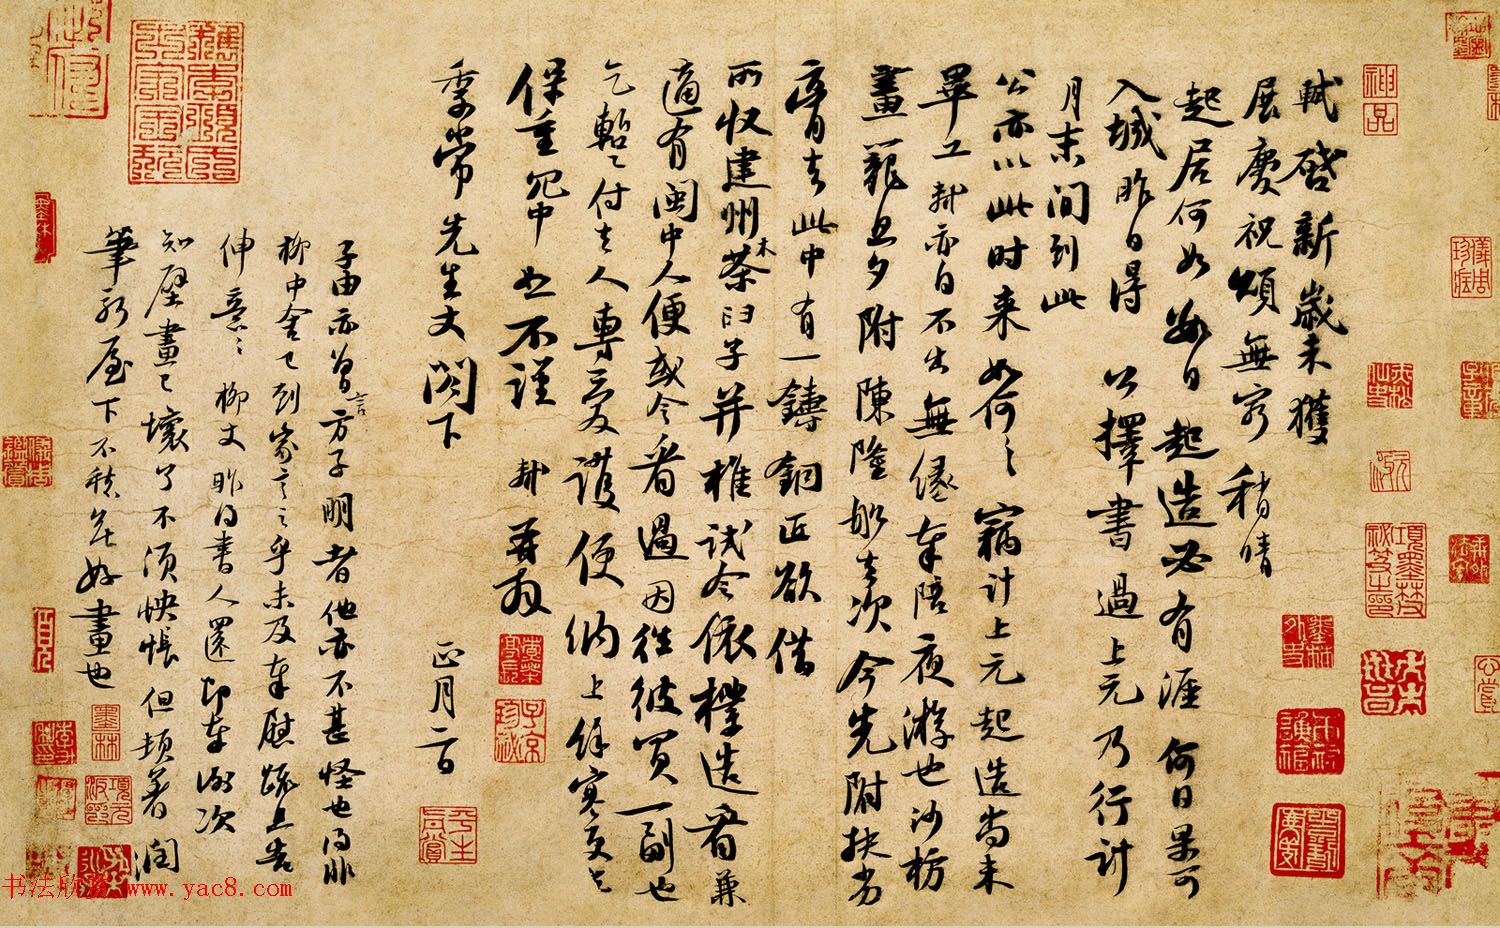 軾啓新歲未獲
展慶祝頌無窮稍晴
起居何如數日起造必有涯何日果可
入城昨日得公擇書過上元乃行計
月末間到此
公亦以此時来如何〻竊計上元起造尚未
畢工軾亦自不出無緣奉陪夜游也沙枋
畫籠旦夕附陳隆船去次今先附扶劣
膏去此中有一鑄銅匠欲借
所收建州木茶臼子并椎試令依樣造看兼
適有閩中人便或令看過因往彼買一副也
乞暫付去人專愛護便納上餘寒更乞
保重冗中恕不謹軾再拜
季常先生丈閣下
正月二日
子由亦曾言方子明者他亦不甚怪也得非
柳中舍已到家言之乎未及奉慰疏且告
伸意〻柳丈昨得書人還即奉謝次
知壁畫已壞了不須怏悵但頓著潤
筆新屋下不愁無好畫也
神品
墨林
子京珍祕
項墨林祕笈之印
平生真賞
书法欣赏 www.yac8.com